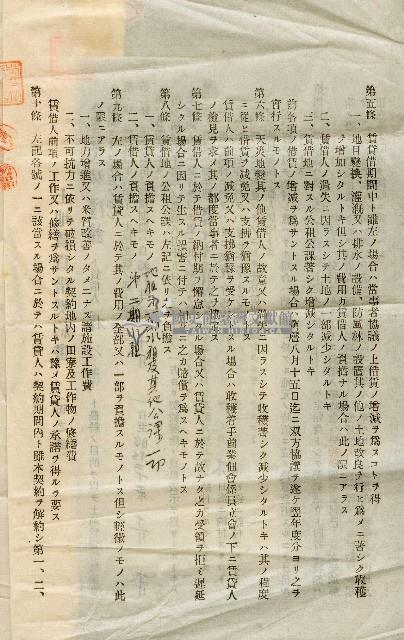 第五條 賃貸借期間中ト雖左ノ場合ハ當事者協議ノ上借賃ノ增減ヲ爲スコトヲ得
一、地目變換、灌漑又ハ排水ノ設備、防風林ノ設置其ノ他ノ土地改良ヲ行ヒ爲メニ著シク收穫
ヲ增加シタルトキ但シ其ノ費用カ賃借人ノ負擔ナル場合ハ此ノ限ニアラス
二、賃借人ノ過失ニ因ラスシテ土地ノ一部減少シタルトキ
三、賃借地ニ對スル公租公課著シク增減シタルトキ
前各項ノ借賃ノ增減ヲ爲サントスル場合ハ舊曆八月十五日迄ニ双方協議ヲ遂ケ翌年度分ヨリ之ヲ
實行スルモノトス
第六條 天災地變其ノ他賃借人ノ故意又ハ過失ニ因ラスシテ收穫著シク減少シタルトキハ其ノ程度
ニ從ヒ借賃ヲ減免又ハ支拂ヲ猶豫スルモノトス
賃借人ハ前項ノ減免又ハ支拂猶豫ヲ受ケントスル場合ハ收穫着手前業佃會係員立會ノ下ニ賃貸人
ノ檢見ヲ求メ其ノ都度當事者ニ於テ之ヲ協定ス
第七條 賃借人ニ於テ借賃ノ納付期ヲ懈怠シタル場合又ハ賃貸人ニ於テ故ナク之カ受領ヲ拒ミ遲延
シタル場合ニ因リテ生スル損害ニ付テハ各之カ賠償ヲ爲スヘキモノトス
第八條 賃借地ノ公租公課ハ左記ニ依リ之ヲ負擔ス
一、賃貸人ノ負擔スヘキモノ 地租 水租及其他公課一切
二、賃借人ノ負擔スヘキモノ 第二期水租
第九條 左ノ場合ハ賃貸人ニ於テ其ノ費用ノ全部又ハ一部ヲ負擔スルモノトス但シ輕微ノモノハ此
ノ限ニアラス
一、地力增進又ハ米質改善ノタメニナス諸施設工作費
二、不可抗力ニ依リテ破損シタル契約地內ノ田寮及工作物ノ修繕費
賃借人前項ノ工作又ハ修繕ヲ爲サントスルトキハ豫メ賃貸人ノ承諾ヲ得ルヲ要ス
第十條 左記各號ノ一ニ該當スル場合ニ於テハ賃貸人ハ契約期間內ト雖本契約ヲ解約シ第一、二、